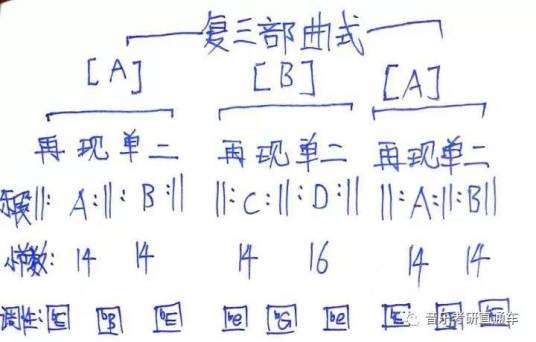 复三部曲式
[A] [B] [A]
再现单二 再现单二 再现单二
乐段 ‖: A :‖: B :‖ ‖: C :‖: D :‖ ‖: A :‖: B ‖
小节数: 14 14 14 16 14 14
调性: ᵇE ᵇB ᵇE ᵇe ᵇG ᵇe
音乐考研直通车